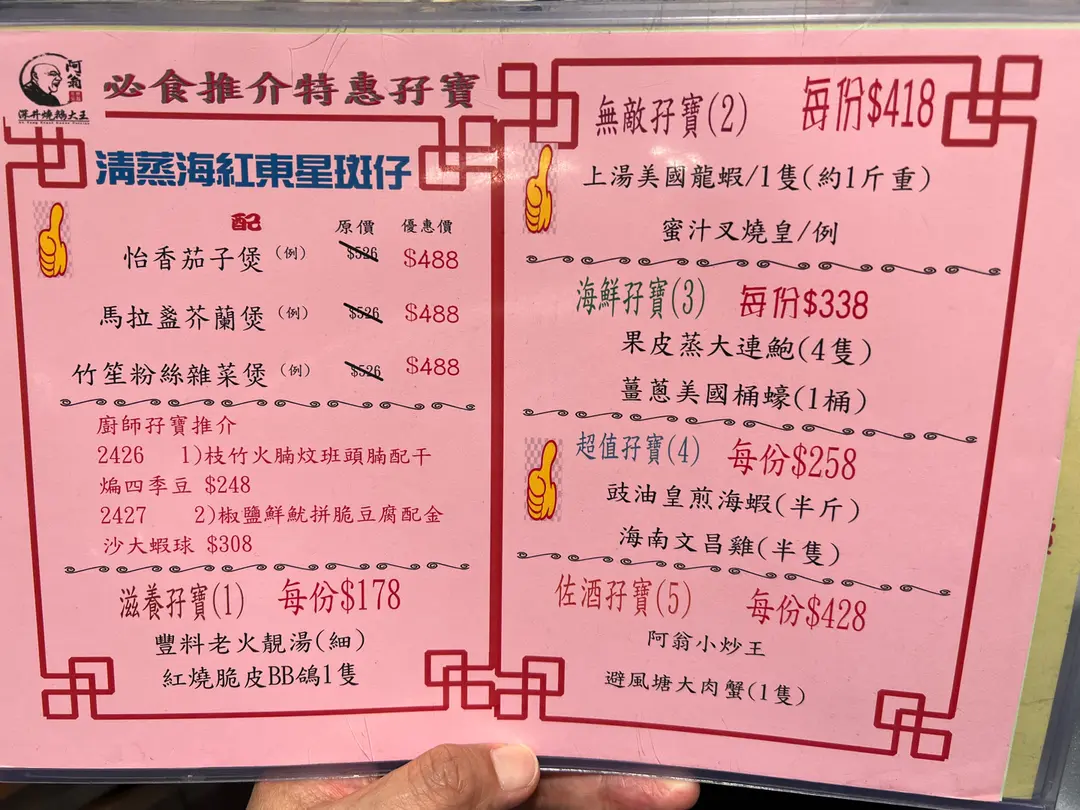 阿翁
深井燒鵝大王
必食推介特惠孖寶
清蒸海紅東星斑仔
配 原價 優惠價
怡香茄子煲(例) $526 $488
馬拉盞芥蘭煲(例) $526 $488
竹笙粉絲雜菜煲(例) $526 $488
廚師孖寶推介
2426 1)枝竹火腩炆班頭腩配干
煸四季豆 $248
2427 2)椒鹽鮮魷拼脆豆腐配金
沙大蝦球 $308
滋養孖寶(1) 每份$178
豐料老火靚湯(細)
紅燒脆皮BB鴿1隻
無敵孖寶(2) 每份$418
上湯美國龍蝦/1隻(約1斤重)
蜜汁叉燒皇/例
海鮮孖寶(3) 每份$338
果皮蒸大連鮑(4隻)
薑蔥美國桶蠔(1桶)
超值孖寶(4) 每份$258
豉油皇煎海蝦(半斤)
海南文昌雞(半隻)
佐酒孖寶(5) 每份$428
阿翁小炒王
避風塘大肉蟹(1隻)